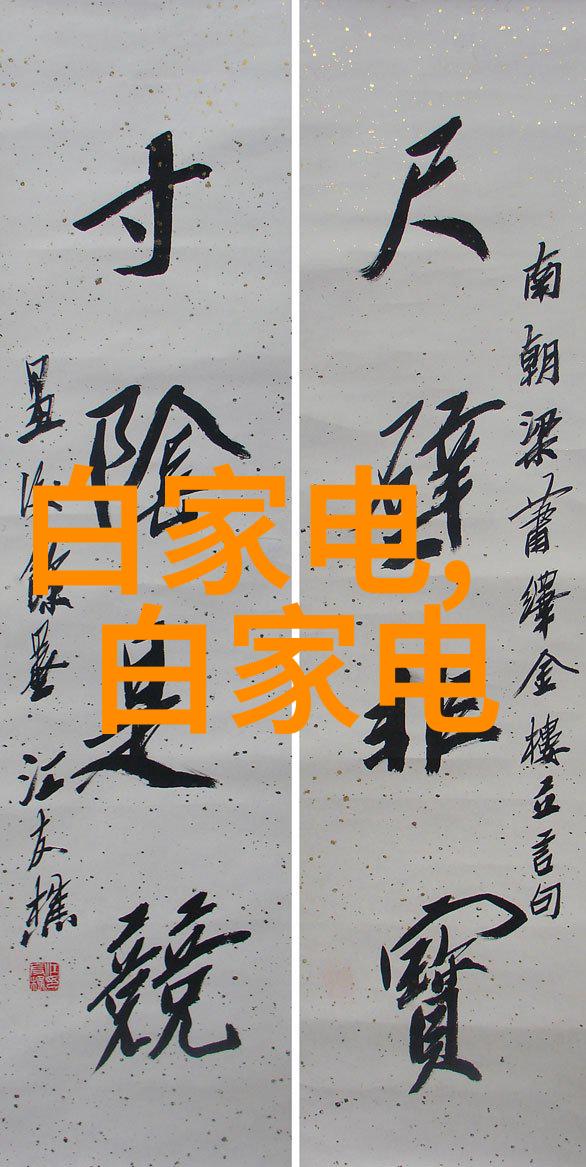 南朝梁蕭繹金樓立言句
尺璧非寶
寸陰是競
江友樵
白家电,
白家电